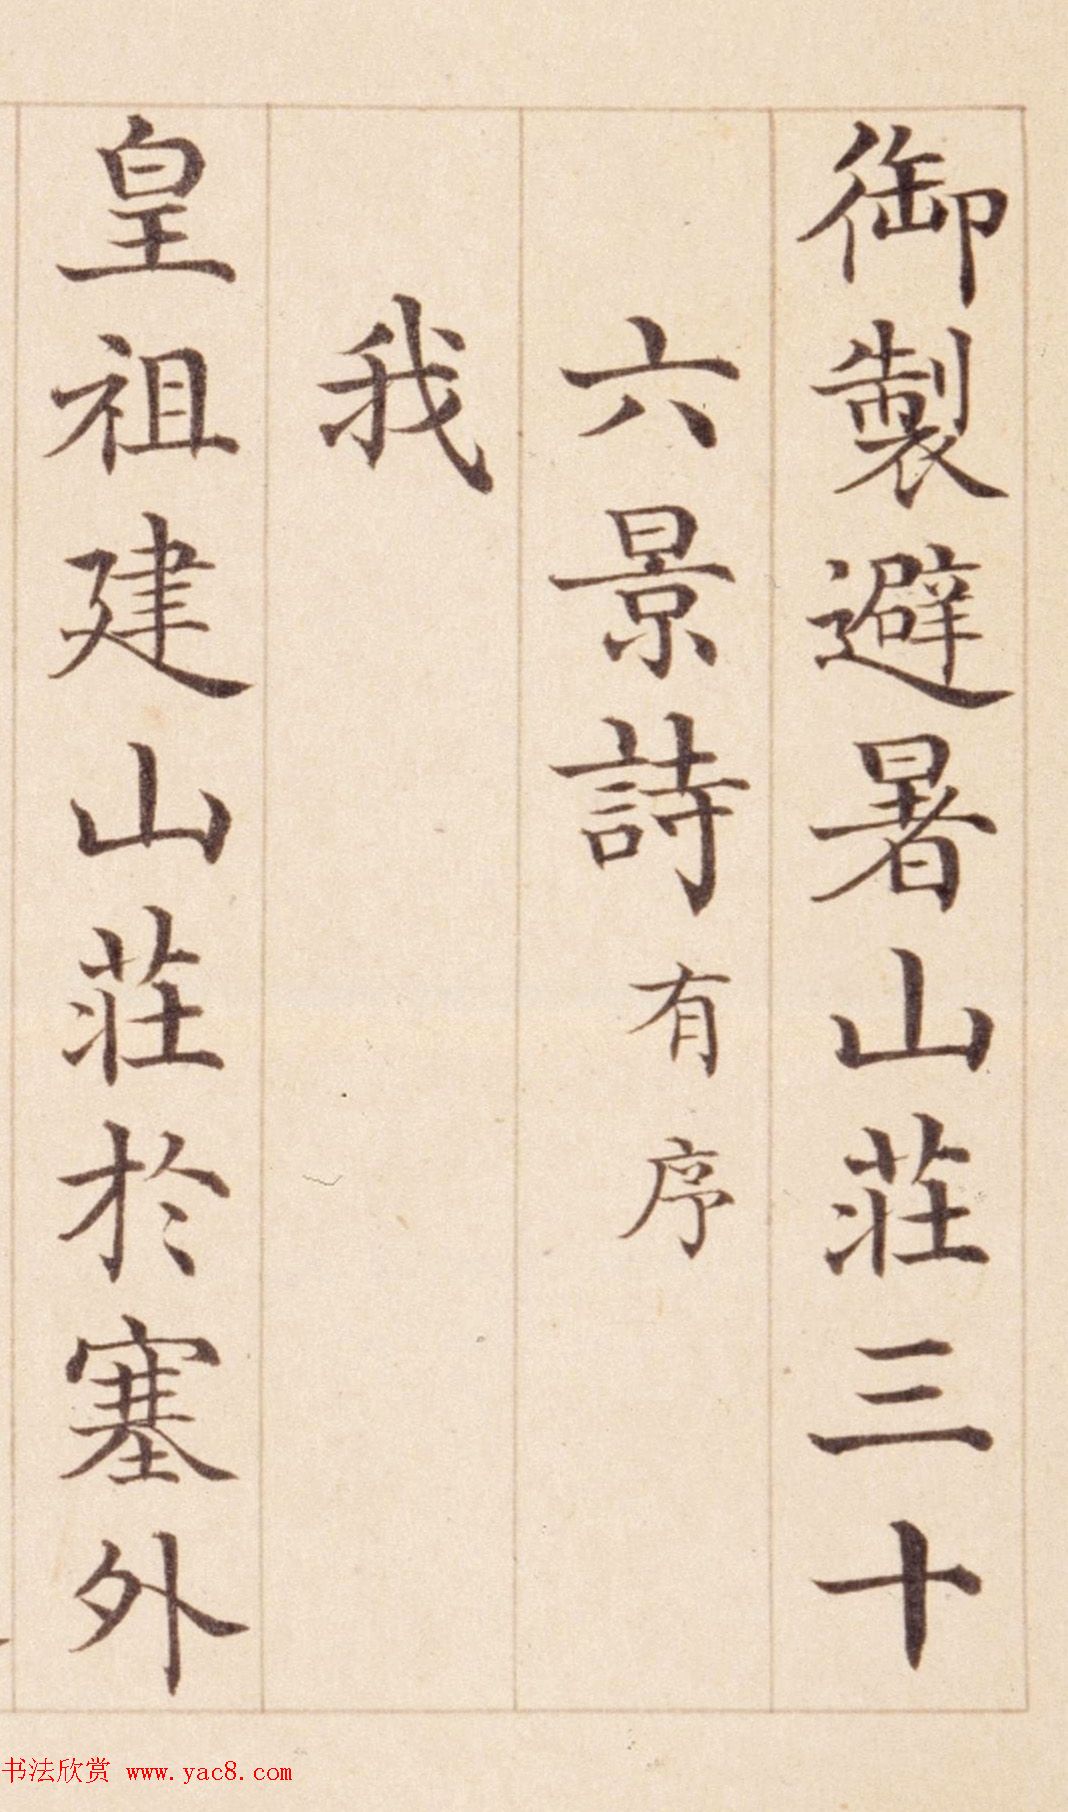 御製避暑山莊三十
六景詩有序
我
皇祖建山莊於塞外
书法欣赏 www.yac8.com